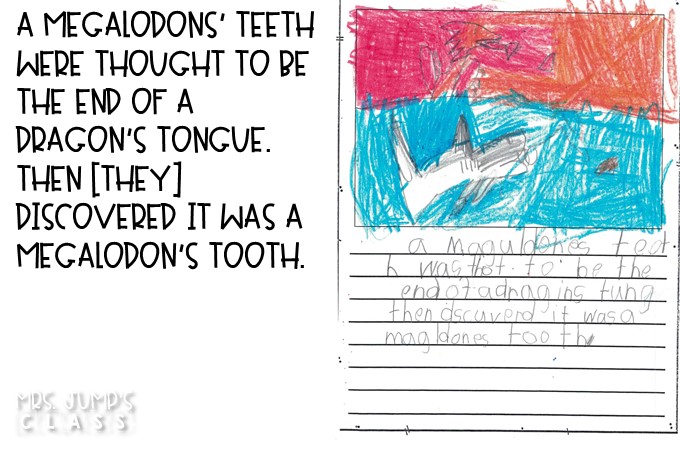 A MEGALODONS' TEETH
WERE THOUGHT TO BE
THE END OF A
DRAGON'S TONGUE.
THEN [THEY]
DISCOVERED IT WAS A
MEGALODON'S TOOTH.
MRS. JUMP'S
CLASS
a maguldones toot
h was thot to be the
end of a dragins tung
then dscuverd it was a
magldones tooth